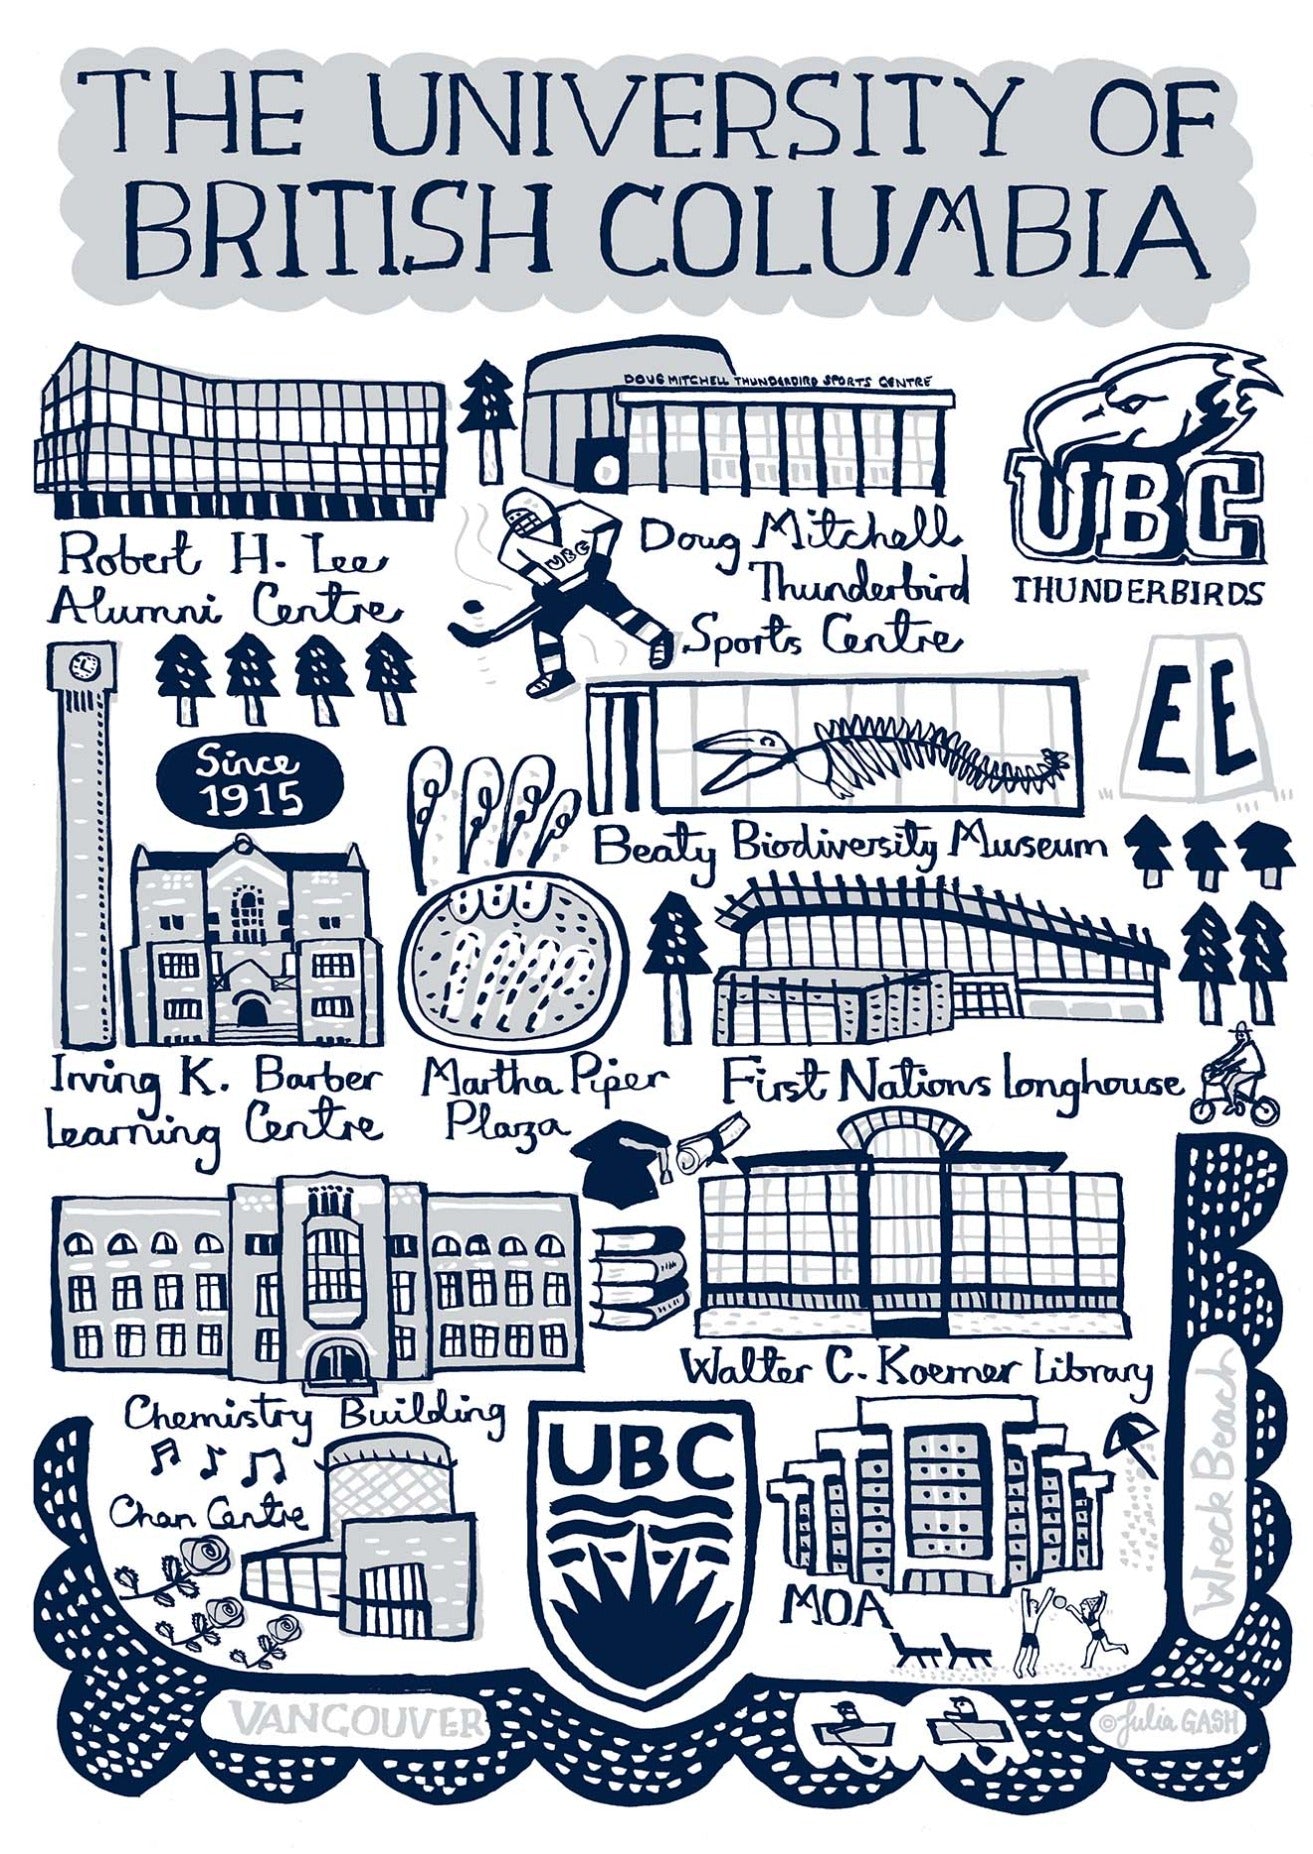 THE UNIVERSITY OF
BRITISH COLUMBIA
DOUG MITCHELL THUNDERBIRD SPORTS CENTRE
Robert H. Lee
Alumni Centre
UBC
Doug Mitchell
Thunderbird
Sports Centre
UBC
THUNDERBIRDS
Since
1915
E E
Beaty Biodiversity Museum
Irving K. Barber
Learning Centre
Martha Piper
Plaza
First Nations Longhouse
Walter C. Koerner Library
Chemistry Building
Chan Centre
UBC
MOA
Wreck Beach
VANCOUVER
©Julia GASH